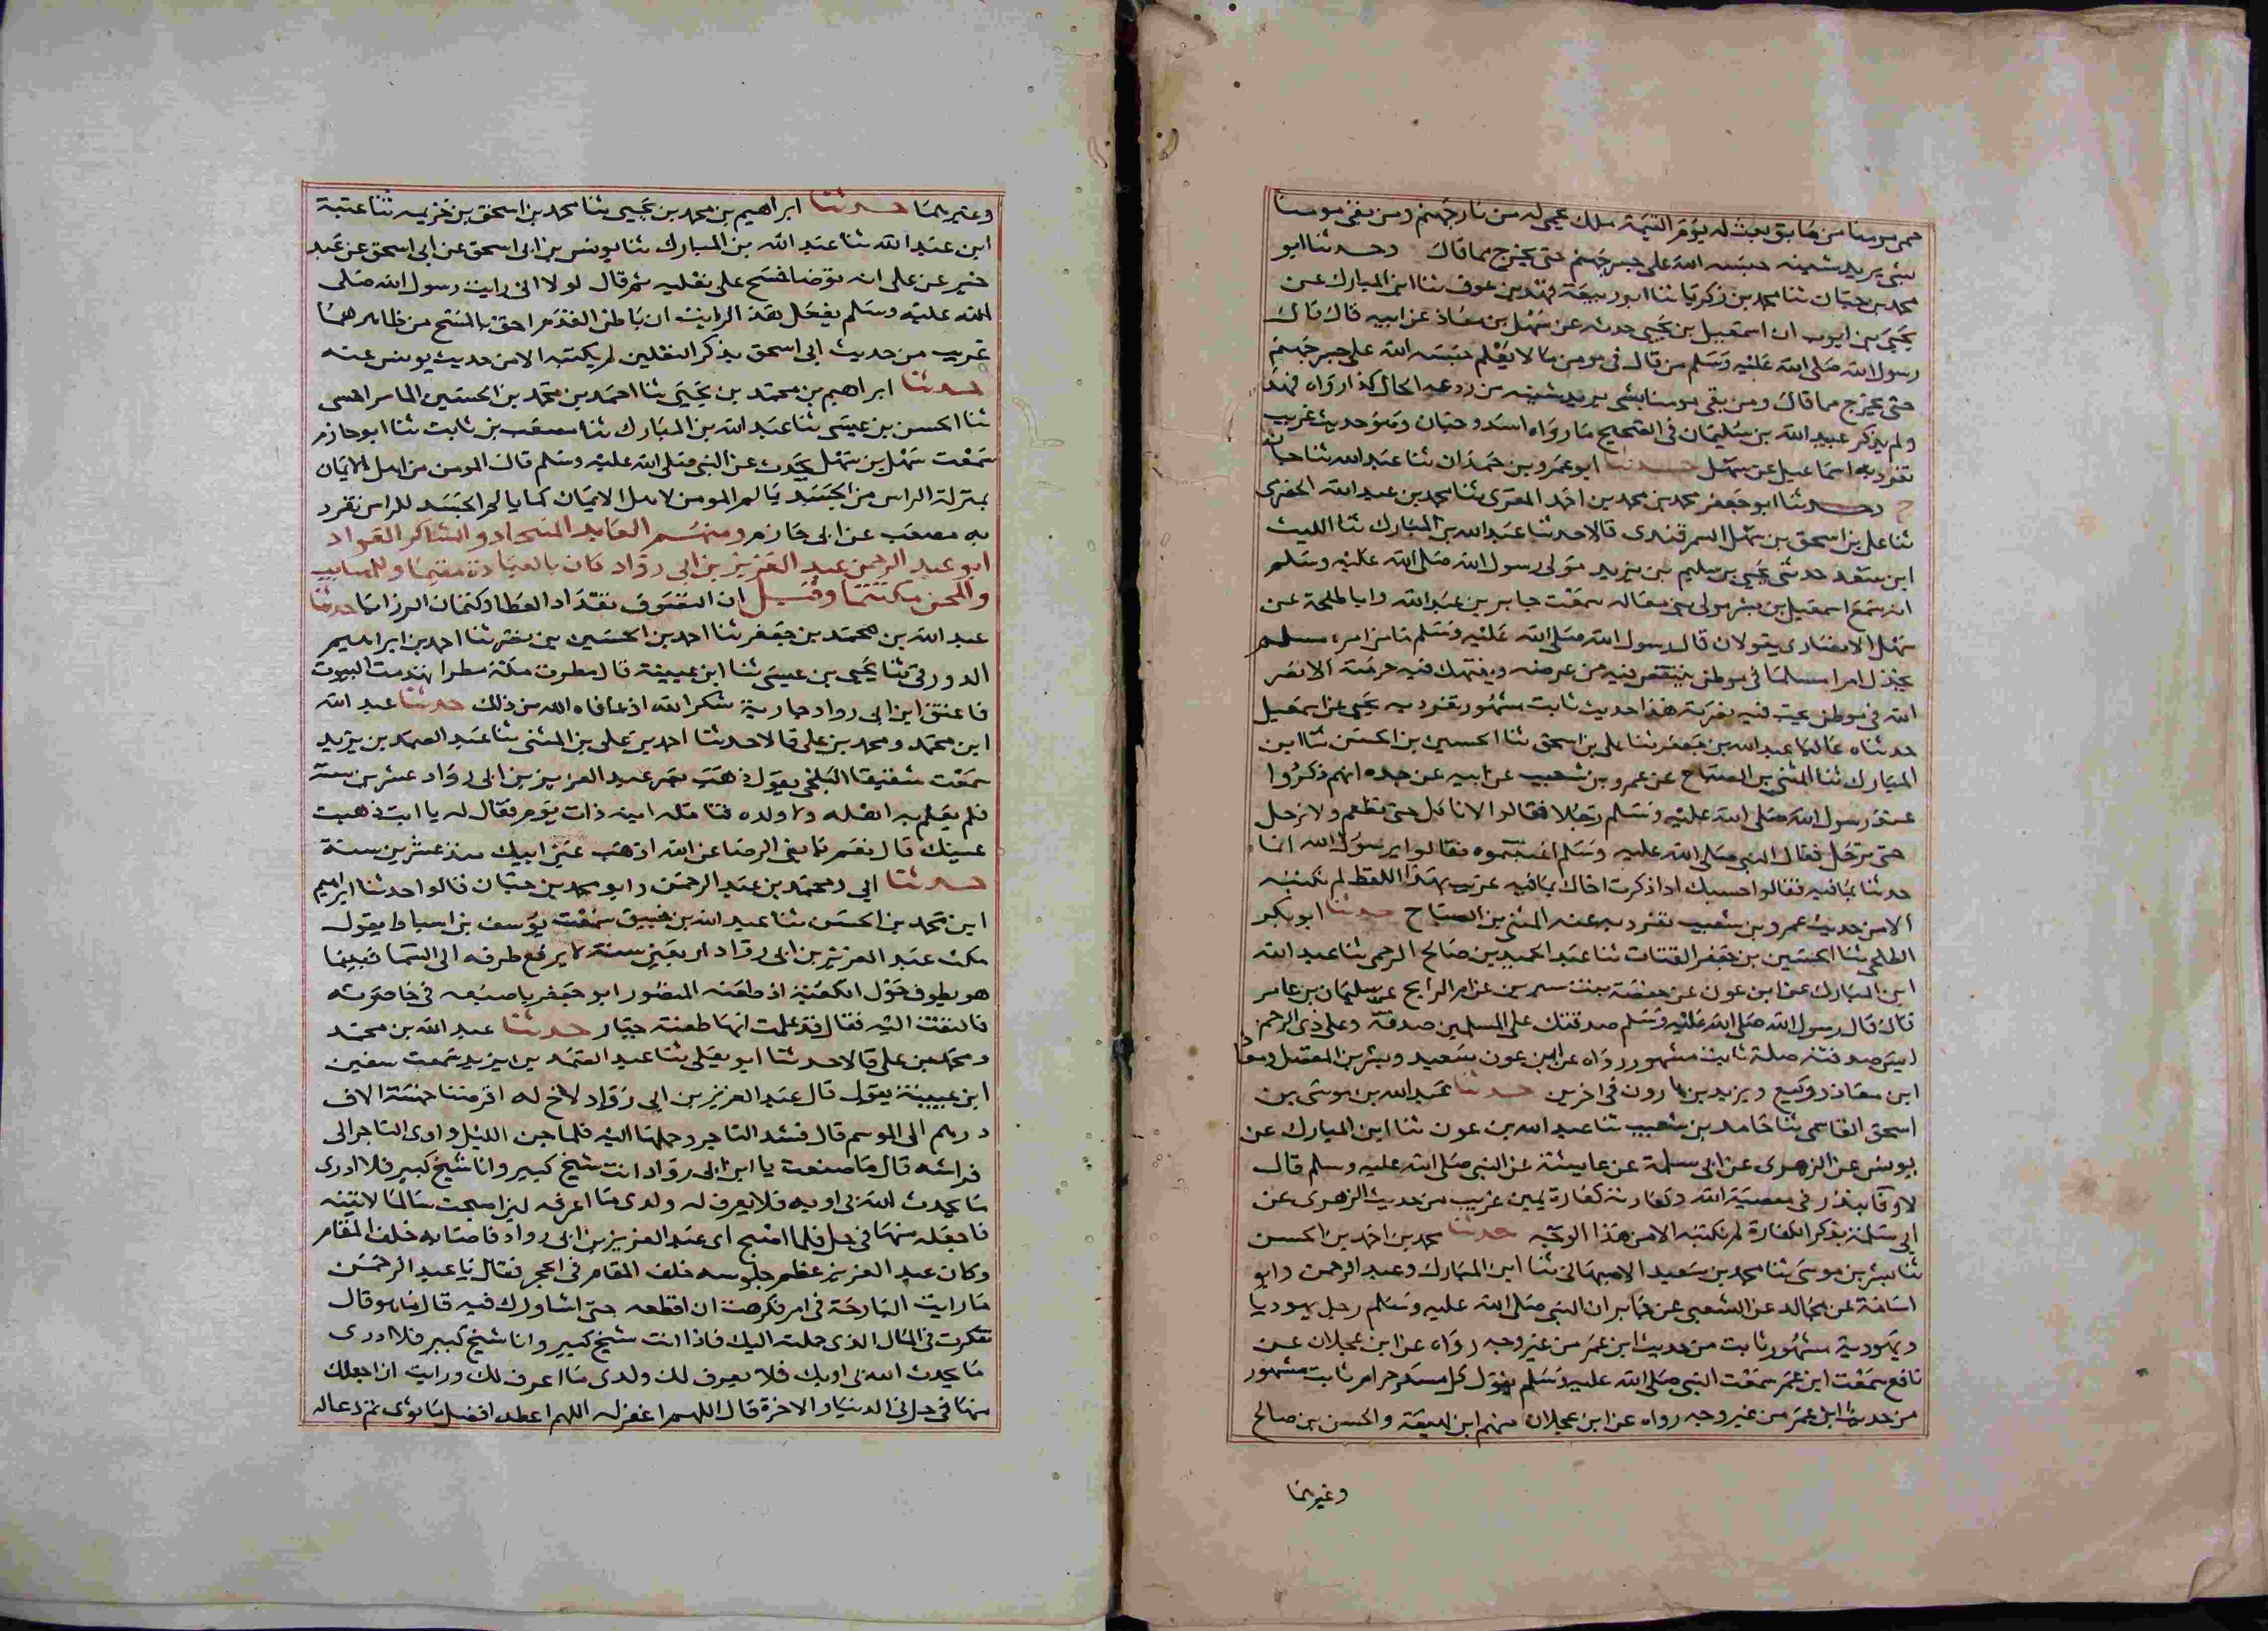 حمى مومنا من منافق بعث له يوم القيمة ملك يحمى لحمه من نار جهنم ومن بغى مومنا
بشى يريد شينه حبسه الله على جسر جهنم حتى يخرج مما قال وحدثنا ابو
محمد بن حيان ثنا محمد بن زكريا ثنا ابو ربيعة فهد بن عوف ثنا ابن المبارك عن
يحيى بن ايوب ان اسمعيل بن يحيى حدثه عن سهل بن معاذ عن ابيه قال قال
رسول الله صلى الله عليه وسلم من قال فى مومن ما لا يعلم حبسه الله على جسر جهنم
حتى يخرج مما قال ومن بغى مومنا بشى يريد شينه من ردغه الخال كذا رواه فهد
ولم يذكر عبد الله بن سليمان فى الصحيح ما رواه اسد وحبان وهو حديث غريب
تفرد به اسماعيل عن سهل حدثنا ابو عمرو بن حمدان ثنا عبد الله ثنا حبان
ح وحدثنا ابو جعفر محمد بن محمد بن احمد المقرى ثنا محمد بن عبد الله الحضرمى
ثنا على بن اسحق بن سهل السمرقندى قالا حدثنا عبد الله بن المبارك ثنا الليث
ابن سعد حدثنى يحيى بن سليم بن يزيد مولى رسول الله صلى الله عليه وسلم
انه سمع اسمعيل بن بشر مولى بنى مغاله سمعت جابر بن عبد الله وابا طلحة بن
سهل الانصارى يقولان قال رسول الله صلى الله عليه وسلم ما من امرء مسلم
يخذل امرا مسلما فى موطن ينتقص فيه من عرضه وينتهك فيه حرمته الا نصر
الله فى موطن يحب فيه نصرته هذا حديث ثابت مشهور تفرد به يحيى عن اسمعيل
حدثناه عاليا عبد الله بن جعفر ثنا على بن اسحق ثنا الحسين بن الحسن ثنا ابن
المبارك ثنا المثنى بن الصباح عن عمرو بن شعيب عن ابيه عن جده انهم ذكروا
عند رسول الله صلى الله عليه وسلم رجلا فقالوا لا ناكل حتى نطعم ولا نرحل
حتى نرحل فقال النبى صلى الله عليه وسلم اغتبتموه فقالوا يرسول الله انما
حدثنا بما فيه فقالوا حسبك اذا ذكرت اخاك بما فيه غريب بهذا اللفظ لم نكتبه
الا من حديث عمرو بن شعيب تفرد به عنه المثنى بن الصباح حدثنا ابو بكر
الطلحى ثنا الحسين بن جعفر القتات ثنا عبد الحميد بن صالح البرجمى ثنا عبد الله
ابن المبارك عن ابن عون عن حفصة بنت سيرين عن ام الرايح عن سليمان بن عامر
قال قال رسول الله صلى الله عليه وسلم صدقتك على المسلمين صدقة وعلى ذى الرحم
اثنين صدقة وصلة ثابت مشهور رواه عن ابن عون سعيد وبشر بن المفضل ومعاذ
ابن معاذ ووكيع ويزيد بن هارون فى اخرين حدثنا عبد الله بن موسى بن
اسحق القاسمى ثنا حامد بن شعيب ثنا عبد الله بن عون ثنا ابن المبارك عن
يونس عن الزهرى عن ابى سلمة عن عايشة عن النبى صلى الله عليه وسلم قال
لا وفا بنذر فى معصية الله وكفارته كفارة يمين غريب من حديث الزهرى عن
ابى سلمة بذكر الكفارة لم نكتبه الا من هذا الوجه حدثنا محمد بن احمد بن الحسن
ثنا بشر بن موسى ثنا محمد بن سعيد الاصبهانى ثنا ابن المبارك وعبد الرحمن وابو
اسامة عن مجالد عن الشعبى عن جابر ان النبى صلى الله عليه وسلم رجل يهوديا
ويهودية مشهور ثابت من حديث ابن عمر من غير وجه رواه عن ابن عجلان عن
نافع سمعت ابن عمر سمعت النبى صلى الله عليه وسلم يقول كل مسكر حرام ثابت مشهور
من حديث ابن عمر من غير وجه رواه عن ابن عجلان منهم ابن لهيعة والحسن بن صالح
وغيرهما
وغيرهما حدثنا ابراهيم بن محمد بن يحيى ثنا محمد بن اسحق بن خزيمه ثنا عتبة
ابن عبد الله ثنا عبد الله بن المبارك ثنا يونس بن ابى اسحق عن ابى اسحق عن عبد
خير عن على انه توضا فمسح على نعليه ثم قال لولا انى رايت رسول الله صلى
الله عليه وسلم يفعل هذا لرايت ان باطن القدم احق بالمسح من ظاهرهما
غريب من حديث ابى اسحق بذكر النعلين لم يكتبه الا من حديث يونس عنه
حدثنا ابراهيم بن محمد بن يحيى ثنا احمد بن محمد بن الحسين الماسرجسى
ثنا الحسن بن عيسى ثنا عبد الله بن المبارك ثنا مصعب بن ثابت ثنا ابو حازم
سمعت سهل بن سهل يحدث عن النبى صلى الله عليه وسلم قال المومن من اهل الايمان
بمنزلة الراس من الجسد يالم المومن لاهل الايمان كما يالم الجسد للراس تفرد
به مصعب عن ابى حازم ومنهم العابد السجاد والشاكر القواد
ابو عبد الرحمن عبد العزيز بن ابى رواد كان بالعبادة مغتنما وللمصايب
والمحن مكتتما وقيل ان التصوف نقتداد العطا وكتمان الرزايا حدثنا
عبد الله بن محمد بن جعفر ثنا احمد بن الحسين بن نصر ثنا احمد بن ابراهيم
الدورقى ثنا يحيى بن عيسى ثنا ابن عيينة قال مطرت مكة مطرا تهدمت البيوت
فاعتق ابن ابى رواد جارية شكرا لله اذ عافاه الله من ذلك حدثنا عبد الله
ابن محمد ومحمد بن على قالا حدثنا احمد بن على بن المثنى ثنا عبد الصمد بن يزيد
سمعت شقيقا البلخى يقول ذهب بصر عبد العزيز بن ابى رواد عشرين سنة
فلم يعلم به اهله ولا ولده فتامله ابنه ذات يوم فقال له يا ابت ذهبت
عينك قال نعم يا بنى الرضا عن الله اذهب عين ابيك منذ عشرين سنة
حدثنا ابى ومحمد بن عبد الرحمن وابو محمد بن حيان قالوا حدثنا ابراهيم
ابن محمد بن الحسن ثنا عبد الله بن خبيق سمعت يوسف بن اسباط يقول
مكث عبد العزيز بن ابى رواد اربعين سنة لا يرفع طرفه الى السما فبينما
هو يطوف حول الكعبة اذ طعنه المنصور ابو جعفر باصبعه فى خاصرته
فالتفت اليه فقال قد علمت انها طعنة جبار حدثنا عبد الله بن محمد
ومحمد بن على قالا حدثنا ابو يعلى ثنا عبد الصمد بن يزيد سمعت سفين
ابن عيينة يقول قال عبد العزيز بن ابى رواد لاخ له اقرضنا خمسة الاف
درهم الى الموسم قال فشد التاجر وحملها اليه فلما جن الليل واوى التاجر الى
فراشه قال ما صنعت يا ابن ابى رواد انت شيخ كبير وانا شيخ كبير فلا ادرى
ما يحدث الله بى او به فلا يعرف له ولدى ما اعرفه لين اصبحت سالما لاتينه
فاجعله منها فى حل فلما اصبح اتى عبد العزيز بن ابى رواد فاصابه خلف المقام
وكان عبد العزيز عظم جلوسه خلف المقام فى الحجر فقال يا عبد الرحمن
ما رايت البارحة فى امر فكرهت ان اقطعه حتى اشاورك فيه قال ما هو قال
تفكرت فى المال الذى حملت اليك فاذا انت شيخ كبير وانا شيخ كبير فلا ادرى
ما يحدث الله بى او بك فلا يعرف لك ولدى ما اعرف لك ورايت ان اجعلك
منها فى حل فى الدنيا والاخرة قال اللهم اغفر له اللهم اعطه افضل ما نوى ثم دعا له